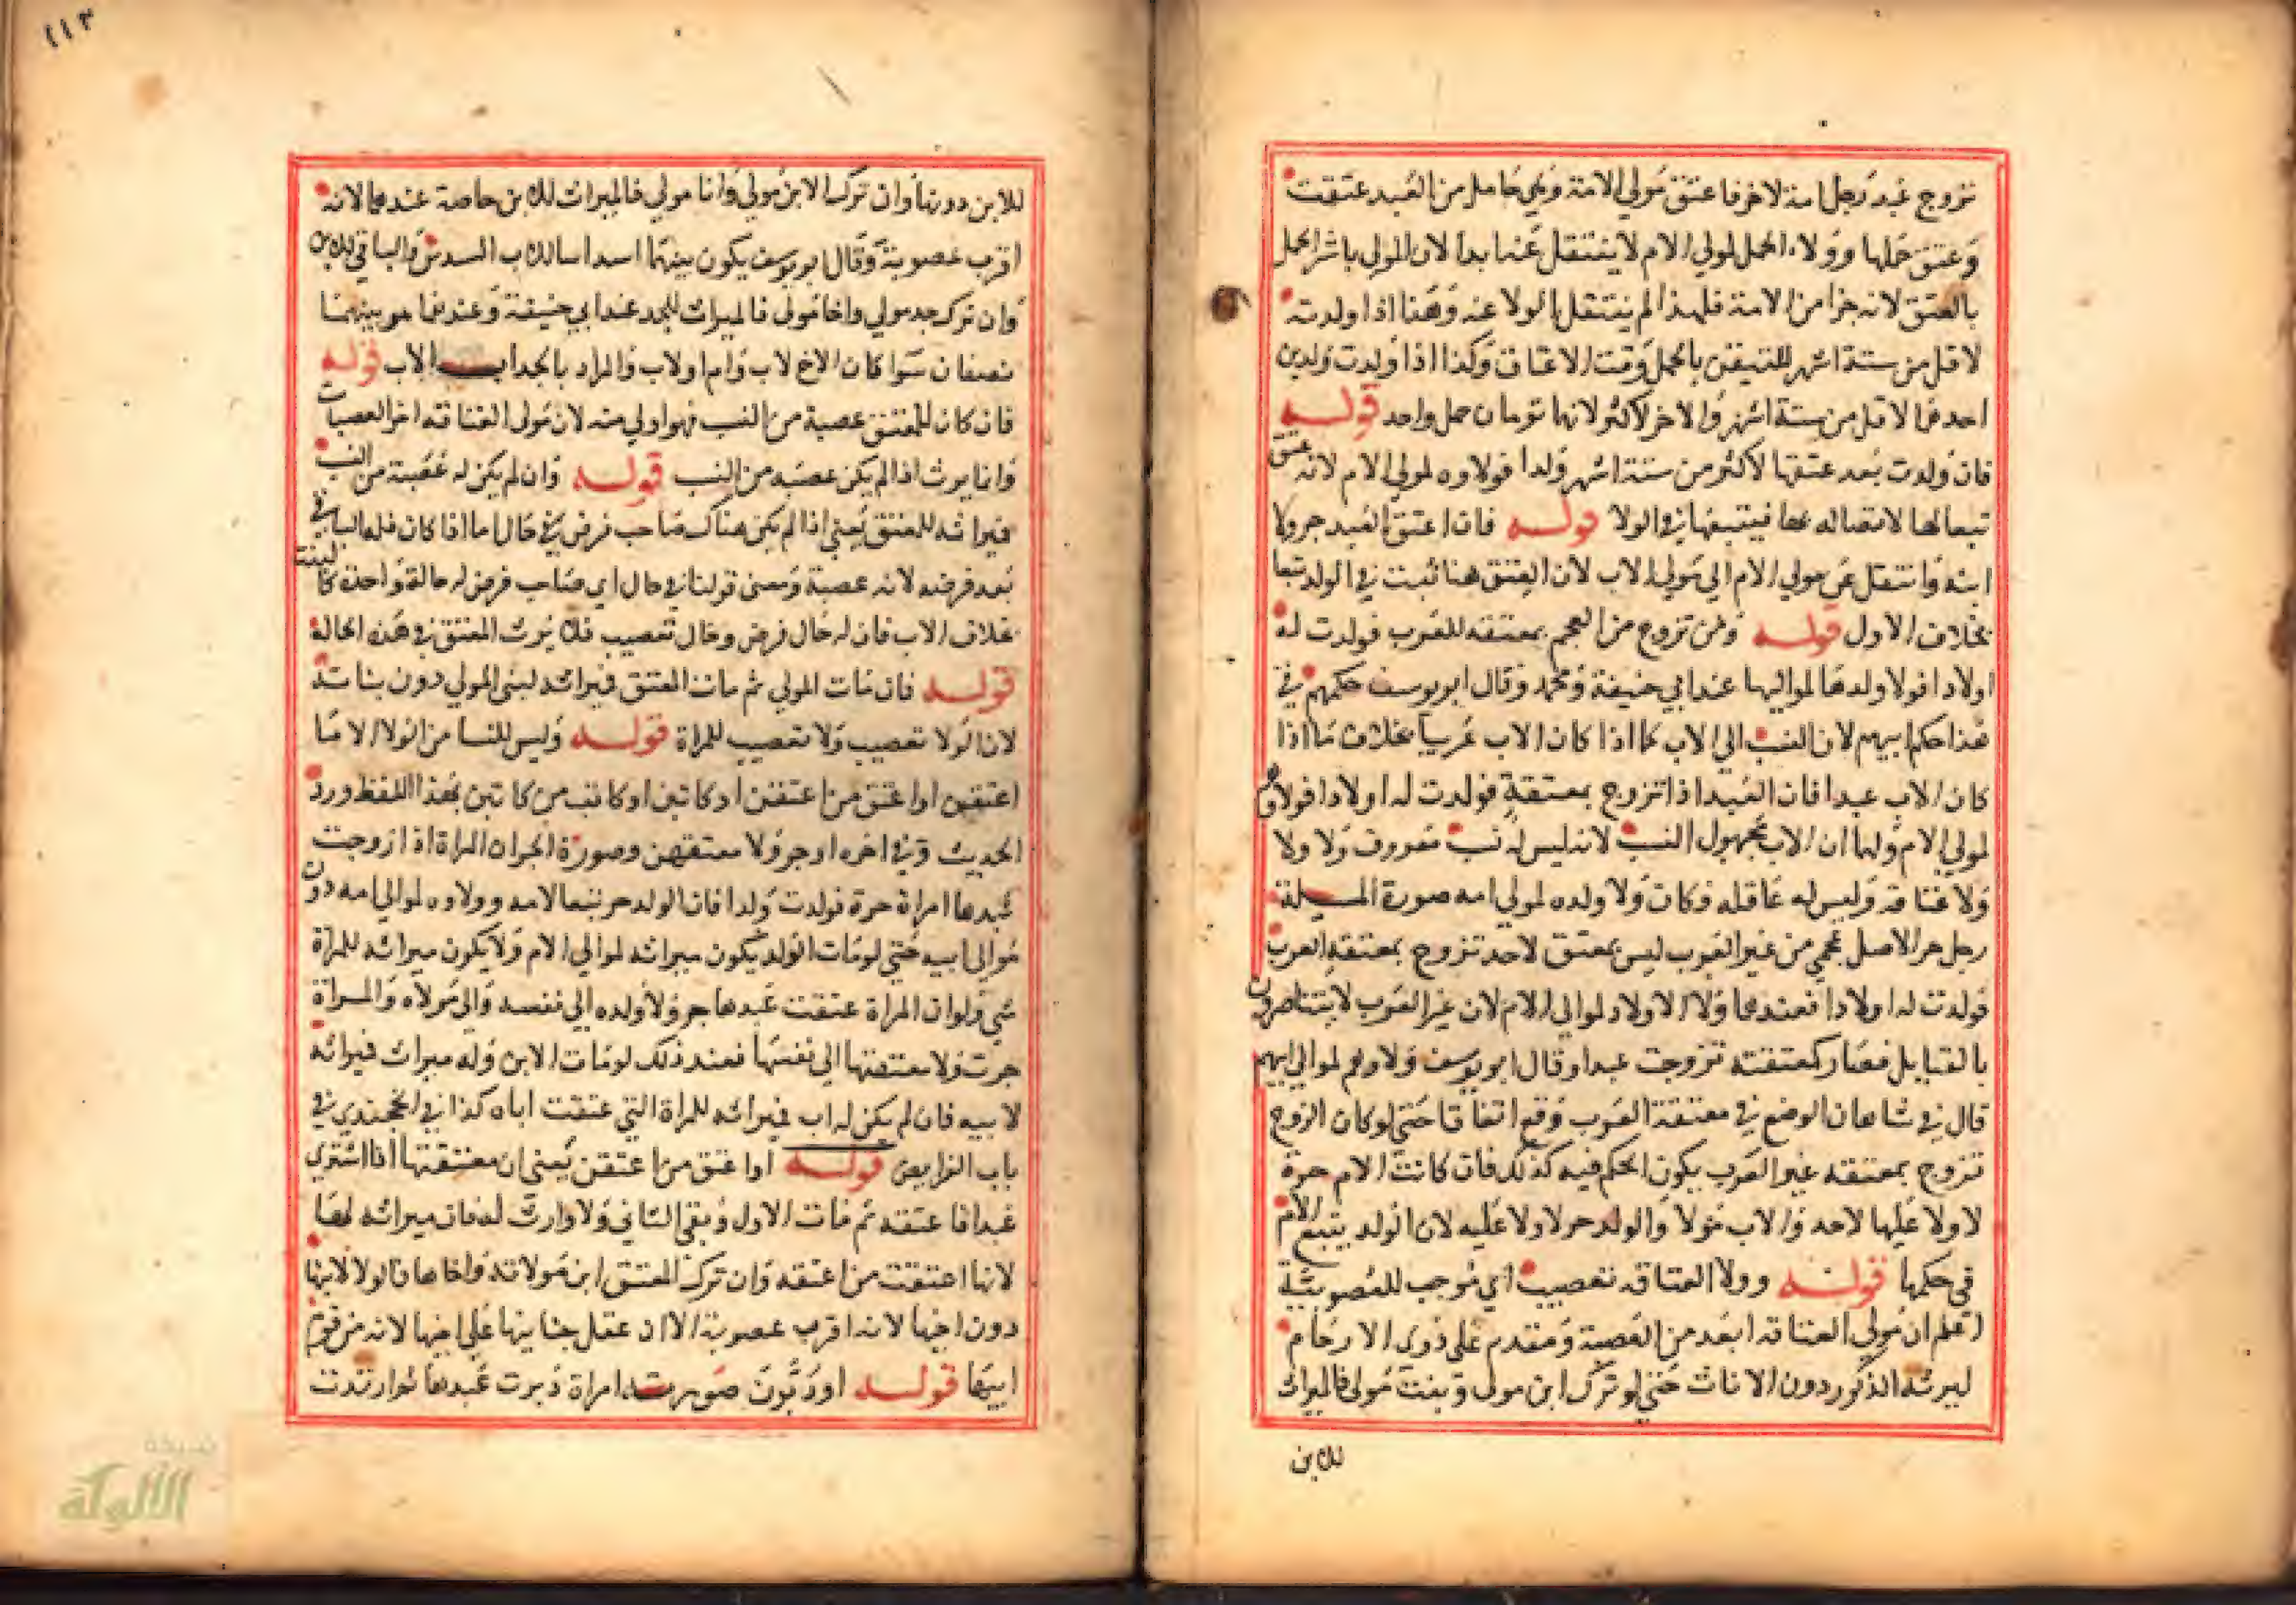 تزوج عبد رجل امة لاخر فاعتق مولي الامة وهي حامل من العبد عتقت
وعتق حملها وولاء الحمل لمولي الام لا ينتقل عنها بدا لان المولي باشر الحمل
بالعتق لانه جزا من الامة فلهذا لم ينتقل الولا عنه وهذا اذا ولدته
لاقل من ستة اشهر للتيقن بالحمل وقت الاعتاق وكذا اذا ولدت ولدين
احدهما لاقل من ستة اشهر والاخر لاكثر لانهما تومان حمل واحد قوله
فان ولدت بعد عتقها لاكثر من ستة اشهر ولدا فولاوه لمولي الام لانه عتق
تبعا لها لاتصاله بها فيتبعها في الولا قوله فان اعتق العبد جر ولا
ابنه وانتقل عن مولي الام الي مولي الاب لان العتق هنا ثبت في الولد تبعا
بخلاف الاول قوله ومن تزوج من العجم بمعتقه للعرب فولدت له
اولادا فولا ولدها لمواليها عند ابي حنيفة ومحمد وقال ابو يوسف حكمهم في
هذا حكم ابيهم لان النسب الي الاب كما اذا كان الاب عربيا بخلاف ما اذا
كان الاب عبدا فان العبد اذا تزوج بمعتقة فولدت له اولادا فولاوهم
لمولي الام ولهما ان الاب مجهول النسب لانه ليس له نسب معروف ولا ولا
ولا عتاقة وليس له عاقله فكان ولا ولده لمولي امه صورة المسئلة
رجل حر الاصل عجمي من غير العرب ليس بمعتق لاحد تزوج بمعتقه العرب
فولدت له اولادا فعندهما ولا الاولاد لموالي الام لان غير العرب لا يتناصرون
بالقبايل فصار كمعتقته تزوجت عبدا وقال ابو يوسف ولاوهم لموالي ابيهم
قال في شاهان الوضع في معتقة العرب وقع اتفاقا حتي لو كان الزوج
تزوج بمعتقه غير العرب يكون الحكم فيه كذلك فان كانت الام حرة
لا ولا عليها لاحد والاب مولا والولد حر لا ولا عليه لان الولد يتبع الام
في حكمها قوله وولا العتاقه تعصيب اي موجب للعصوبية
اعلم ان مولي العتاقه ابعد من العصبة ومقدم علي ذوي الارحام
ليرثه الذكور دون الاناث حتي لو ترك ابن مولي وبنت مولي فالميراث
للابن
١١٣
للابن دونها وان ترك الابن مولي وانا مولي فالميراث للابن خاصة عندهما لانه
اقرب عصوبة وقال ابو يوسف يكون بينهما اسداسا للاب السدس والباقي للابن
وان ترك جد مولي واخا مولي فالميراث للجد عند ابي حنيفة وعندهما هو بينهما
نصفان سوا كان الاخ لاب وام او لاب والمراد بالجد اب الاب قوله
فان كان للمعتق عصبة من النسب فهو اولي منه لان مولي العتاقه اخر العصبات
وانما يرث اذا لم يكن عصبه من النسب قوله وان لم يكن له عصبة من النسب
فميراثه للمعتق يعني اذا لم يكن هناك صاحب فرض في حال اما اذا كان فله الباقي
بعد فرضه لانه عصبة ومعنى قولنا في حال اي صاحب فرض له حالة واحدة كالبنت
بخلاف الاب فان له حال فرض وحال تعصيب فلا يرث المعتق في هذه الحالة
قوله فان مات المولي ثم مات المعتق فميراثه لبني المولي دون بناته
لان الولا تعصيب ولا تعصيب للمراة قوله وليس للنسا من الولا الا ما
اعتقهن او اعتق من اعتقن او كاتبن او كاتب من كاتبن بهذا اللفظ ورد
الحديث وفي اخره او جر ولا معتقهن وصورة الجر ان المراة اذا زوجت
عبدها امراة حرة فولدت ولدا فان الولد حر تبعا لامه وولاوه لموالي امه دون
موالي ابيه حتي لو مات الولد يكون ميراثه لموالي الام ولا يكون ميراثه للمراة
شي ولو ان المراة عتقت عبدها جر ولا ولده الي نفسه والي مولاه والمراة
جرت ولا معتقتها الي نفسها فعند ذلك لو مات الابن وله ميراث فميراثه
لابيه فان لم يكن له اب فميراثه للمراة التي عتقت اباه كذا في الخجندي في
باب الفرايض قوله او اعتق من اعتقن يعني ان معتقتها اذا اشتري
عبدا فاعتقه ثم مات الاول وبقي الثاني ولا وارث له فان ميراثه لها
لانها اعتقت من اعتقه وان ترك المعتق ابن مولاته واخاها فالولا لابنها
دون اخيها لانه اقرب عصوبة الا ان عقل جنايتها علي اخيها لانه من قوم
ابيها قوله او دبرن صورته امراة دبرت عبدها ثم ارتدت
شبكة
الألوكة